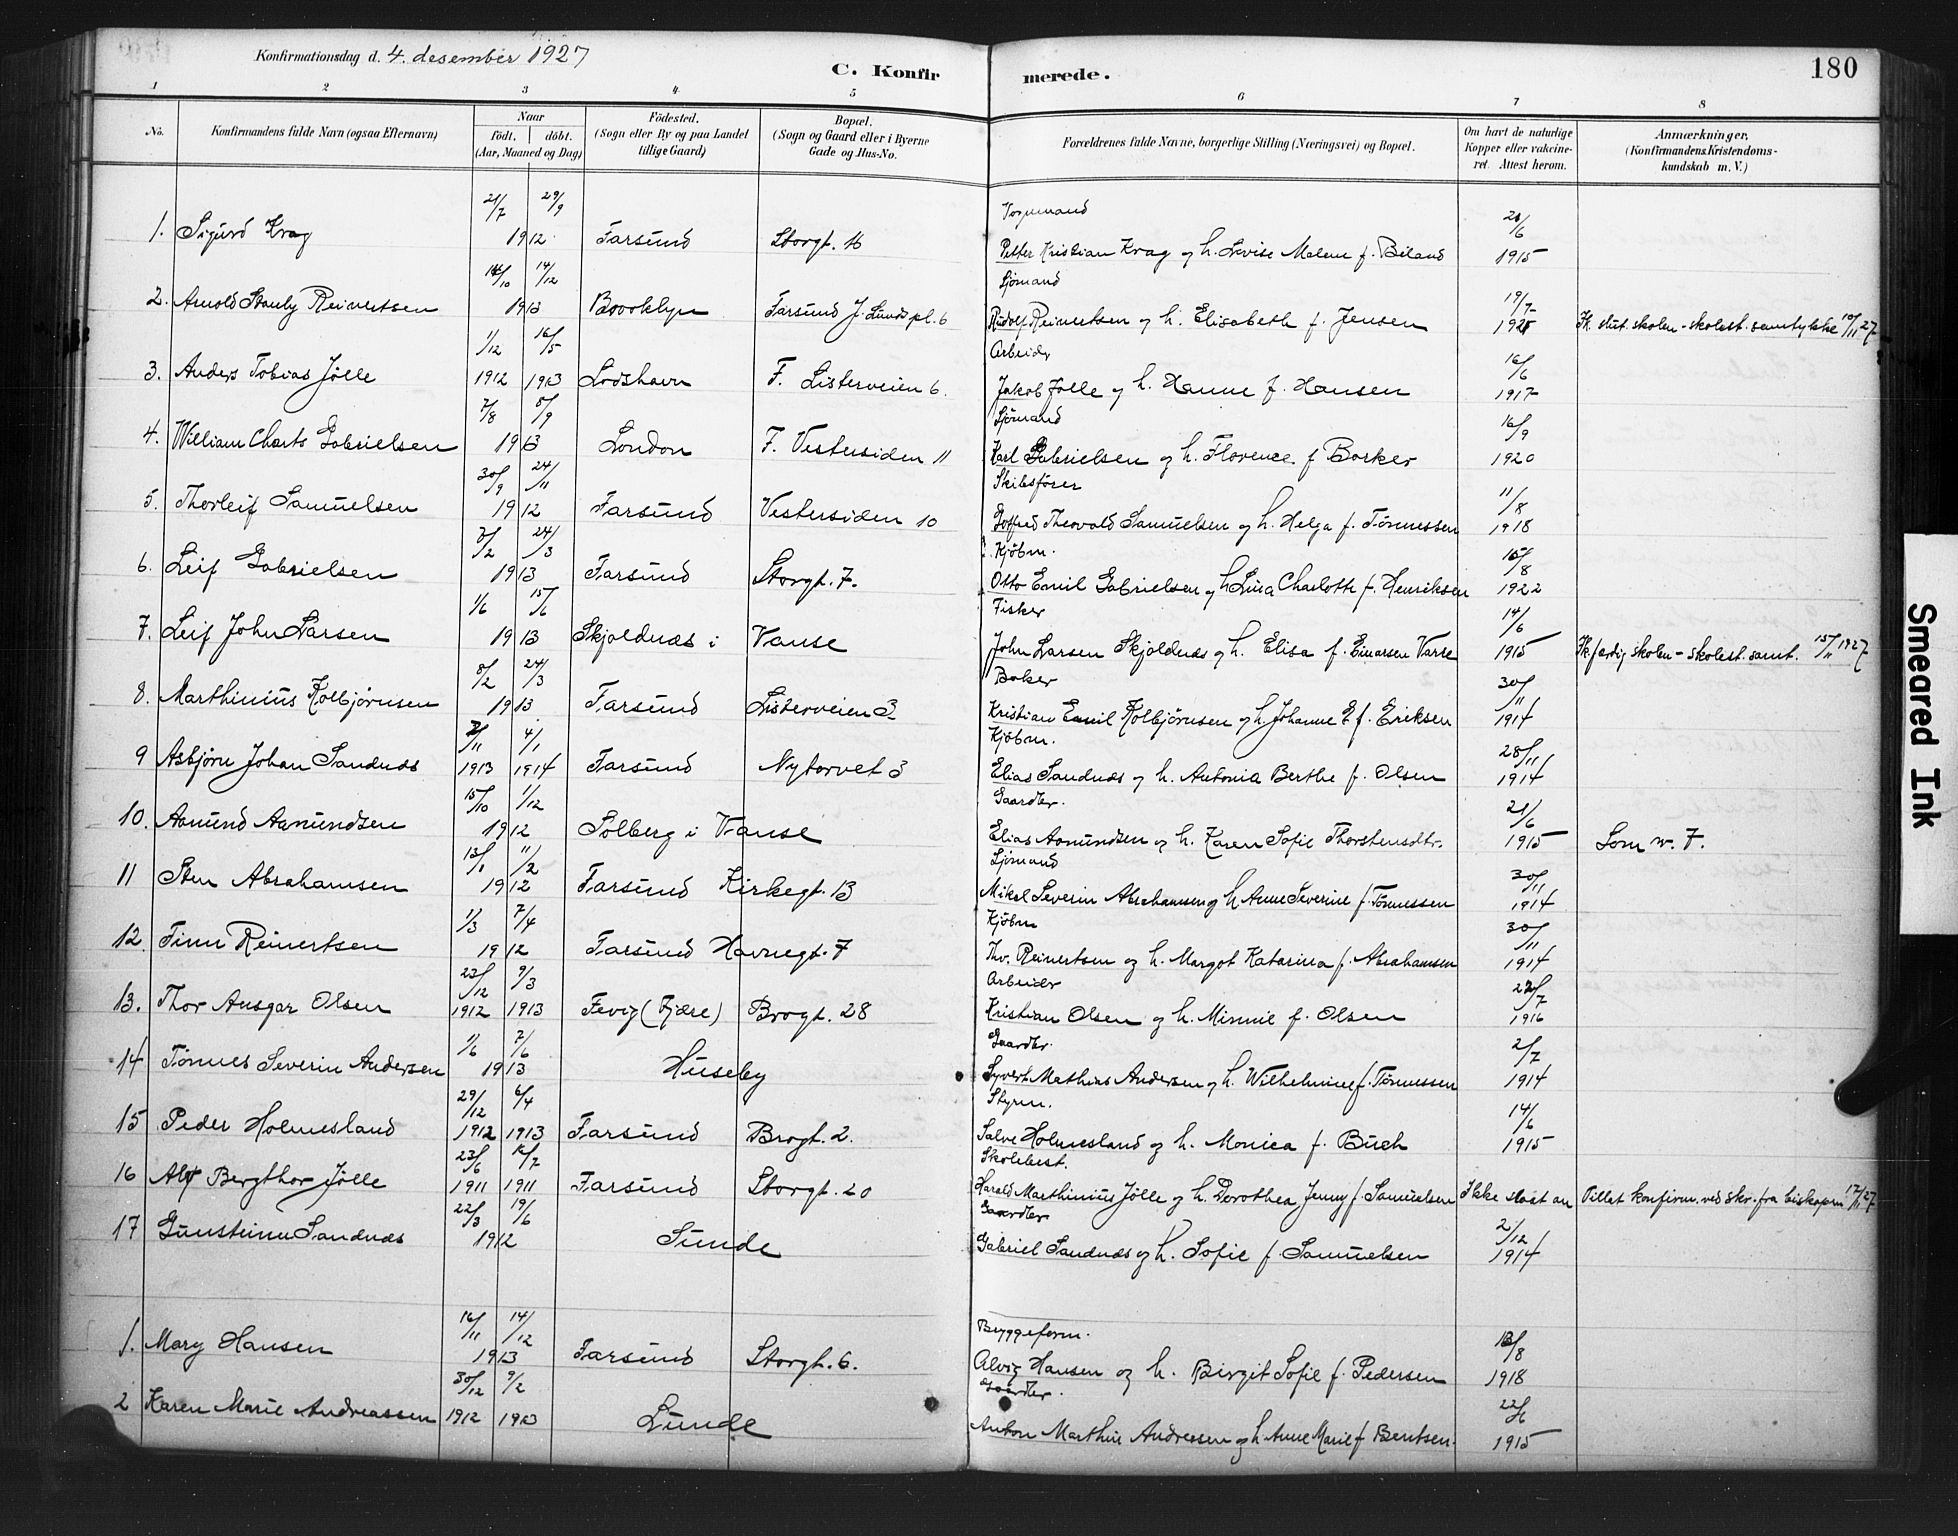 Konfirmationsdag d. 4. desember 1927
C. Konfirmerede.
180
1 2 3 4 5 6 7 8
No.
Konfirmandens fulde Navn (ogsaa Efternavn)
Naar
født. døbt.
(Aar, Maaned og Dag)
Fødested.
(Sogn eller By og paa Landet
tillige Gaard)
Bopæl.
(Sogn og Gaard eller i Byerne
Gade og Hus-No.
Forældrenes fulde Navne, borgerlige Stilling (Næringsvei) og Bopæl.
Om havt de naturlige
Kopper eller vakcine-
ret. Attest herom.
Anmærkninger,
(Konfirmandens Kristendoms-
kundskab m. V.)
21/7 29/9
1. Sigurd Krag 1912 Farsund Storgt. 16 Petter Kristian Krag og h. Lovise Malene f. Biland 1915
14/12 Sjømand
2. Arnold Stanly Reinertsen 1913 Brooklyn Farsund J. Lunds pl. 6 Rudolf Reinertsen og h. Elisabeth f. Jensen 19/7
1/12 16/5 Arbeider 16/6
3. Anders Tobias Jølle 1912 1913 Lodshavn F. Listerveien 6. Jakob Jølle og h. Hanne f. Hansen 1917
7/8 5/9 Sjømand 16/9
4. William Charts Gabrielsen 1913 London F. Vestersiden 11 Karl Gabrielsen og h. Florence f Barker 1920
30/9 24/11 Skibsfører 11/8
5. Thorleif Samuelsen 1912 Farsund Vestersiden 10 Gotfred Theovald Samuelsen og h. Helga f. Tønnessen 1918
24/3 Kjøbm.
6. Leif Gabrielsen 1913 Farsund Storgt. 7. Otto Emil Gabrielsen og h Lina Charlotte f. Henriksen 1922
1/6 15/6 Fisker 14/6
7. Leif John Larsen 1913 Skjoldnæs i Vanse John Larsen Skjoldnæs og h. Elisa f. Einarsen Vanse 1915 Ik. færdig skolen - skolest. samt. 15/11 1927
8/2 24/3 Baker 30/11
8. Marthinius Kolbjørnsen 1913 Farsund Listerveien 3. Kristian Emil Kolbjørnsen og h. Johanne E. f. Eriksen 1914
4/1 Kjøbm. 28/11
9 Asbjørn Johan Sandnæs 1913 1914 Farsund Nytorvet 3 Elias Sandnæs og h. Antonia Berthe f. Olsen 1914
15/10 1/12 Gaardbr. 21/6
10. Aamund Aamundsen 1912 Solberg i Vanse Elias Aamundsen og h. Karen Sofie Thorstensdtr. 1915 Som nr. 7.
13/1 11/2 Sjømand 30/11
11 Sten Abrahamsen 1912 Farsund Kirkegt. 13 Mikal Severin Abrahamsen og h Anne Severine f. Tønnessen 1914
1/3 7/4 Kjøbm 30/11
12. Finn Reinertsen 1912 Farsund Havnegt. 7 Thv. Reinertsen og h. Margot Katarina f. Abrahamsen 1914
23/12 9/3 Arbeider
13. Thor Ansgar Olsen 1912 1913 Fevig (Fjære) Brogt. 28 Kristian Olsen og h. Minnie f. Olsen 1916
1/6 7/6 Gaardbr. 2/7
14 Tønnes Severin Andersen 1913 Huseby Syvert Mathias Andersen og h. Wilhelmine f. Tønnessen 1914
29/12 6/4 Styrm. 14/6
15 Peder Holmesland 1912 1913 Farsund Brogt. 2. Salve Holmesland og h. Monica f. Buch 1915
23/6 Skolebest.
16 Alf Bergthor Jølle 1911 1911 Farsund Storgt. 20 Harald Marthinius Jølle og h. Dorothea Jenny f. Samuelsen Ikke slaat an Tillat konfirm. ved skr. fra biskopen 17/11 27
22/3 19/6 Gaardbr 2/12
17 Gunsteinn Sandnæs 1912 Sunde Gabriel Sandnæs og h. Sofie f. Samuelsen 1914
16/11 14/12 Byggeform. 13/8
1. Mary Hansen 1913 Farsund Storgt. 6. Alvig Hansen og h. Birgit Sofie f. Pedersen 1918
30/12 9/2 Gaardbr. 22/6
2 Karen Marie Andreassen 1912 1913 Lunde Anton Marthin Andresen og h. Anne Marie f Bentsen. 1915
Smeared Ink